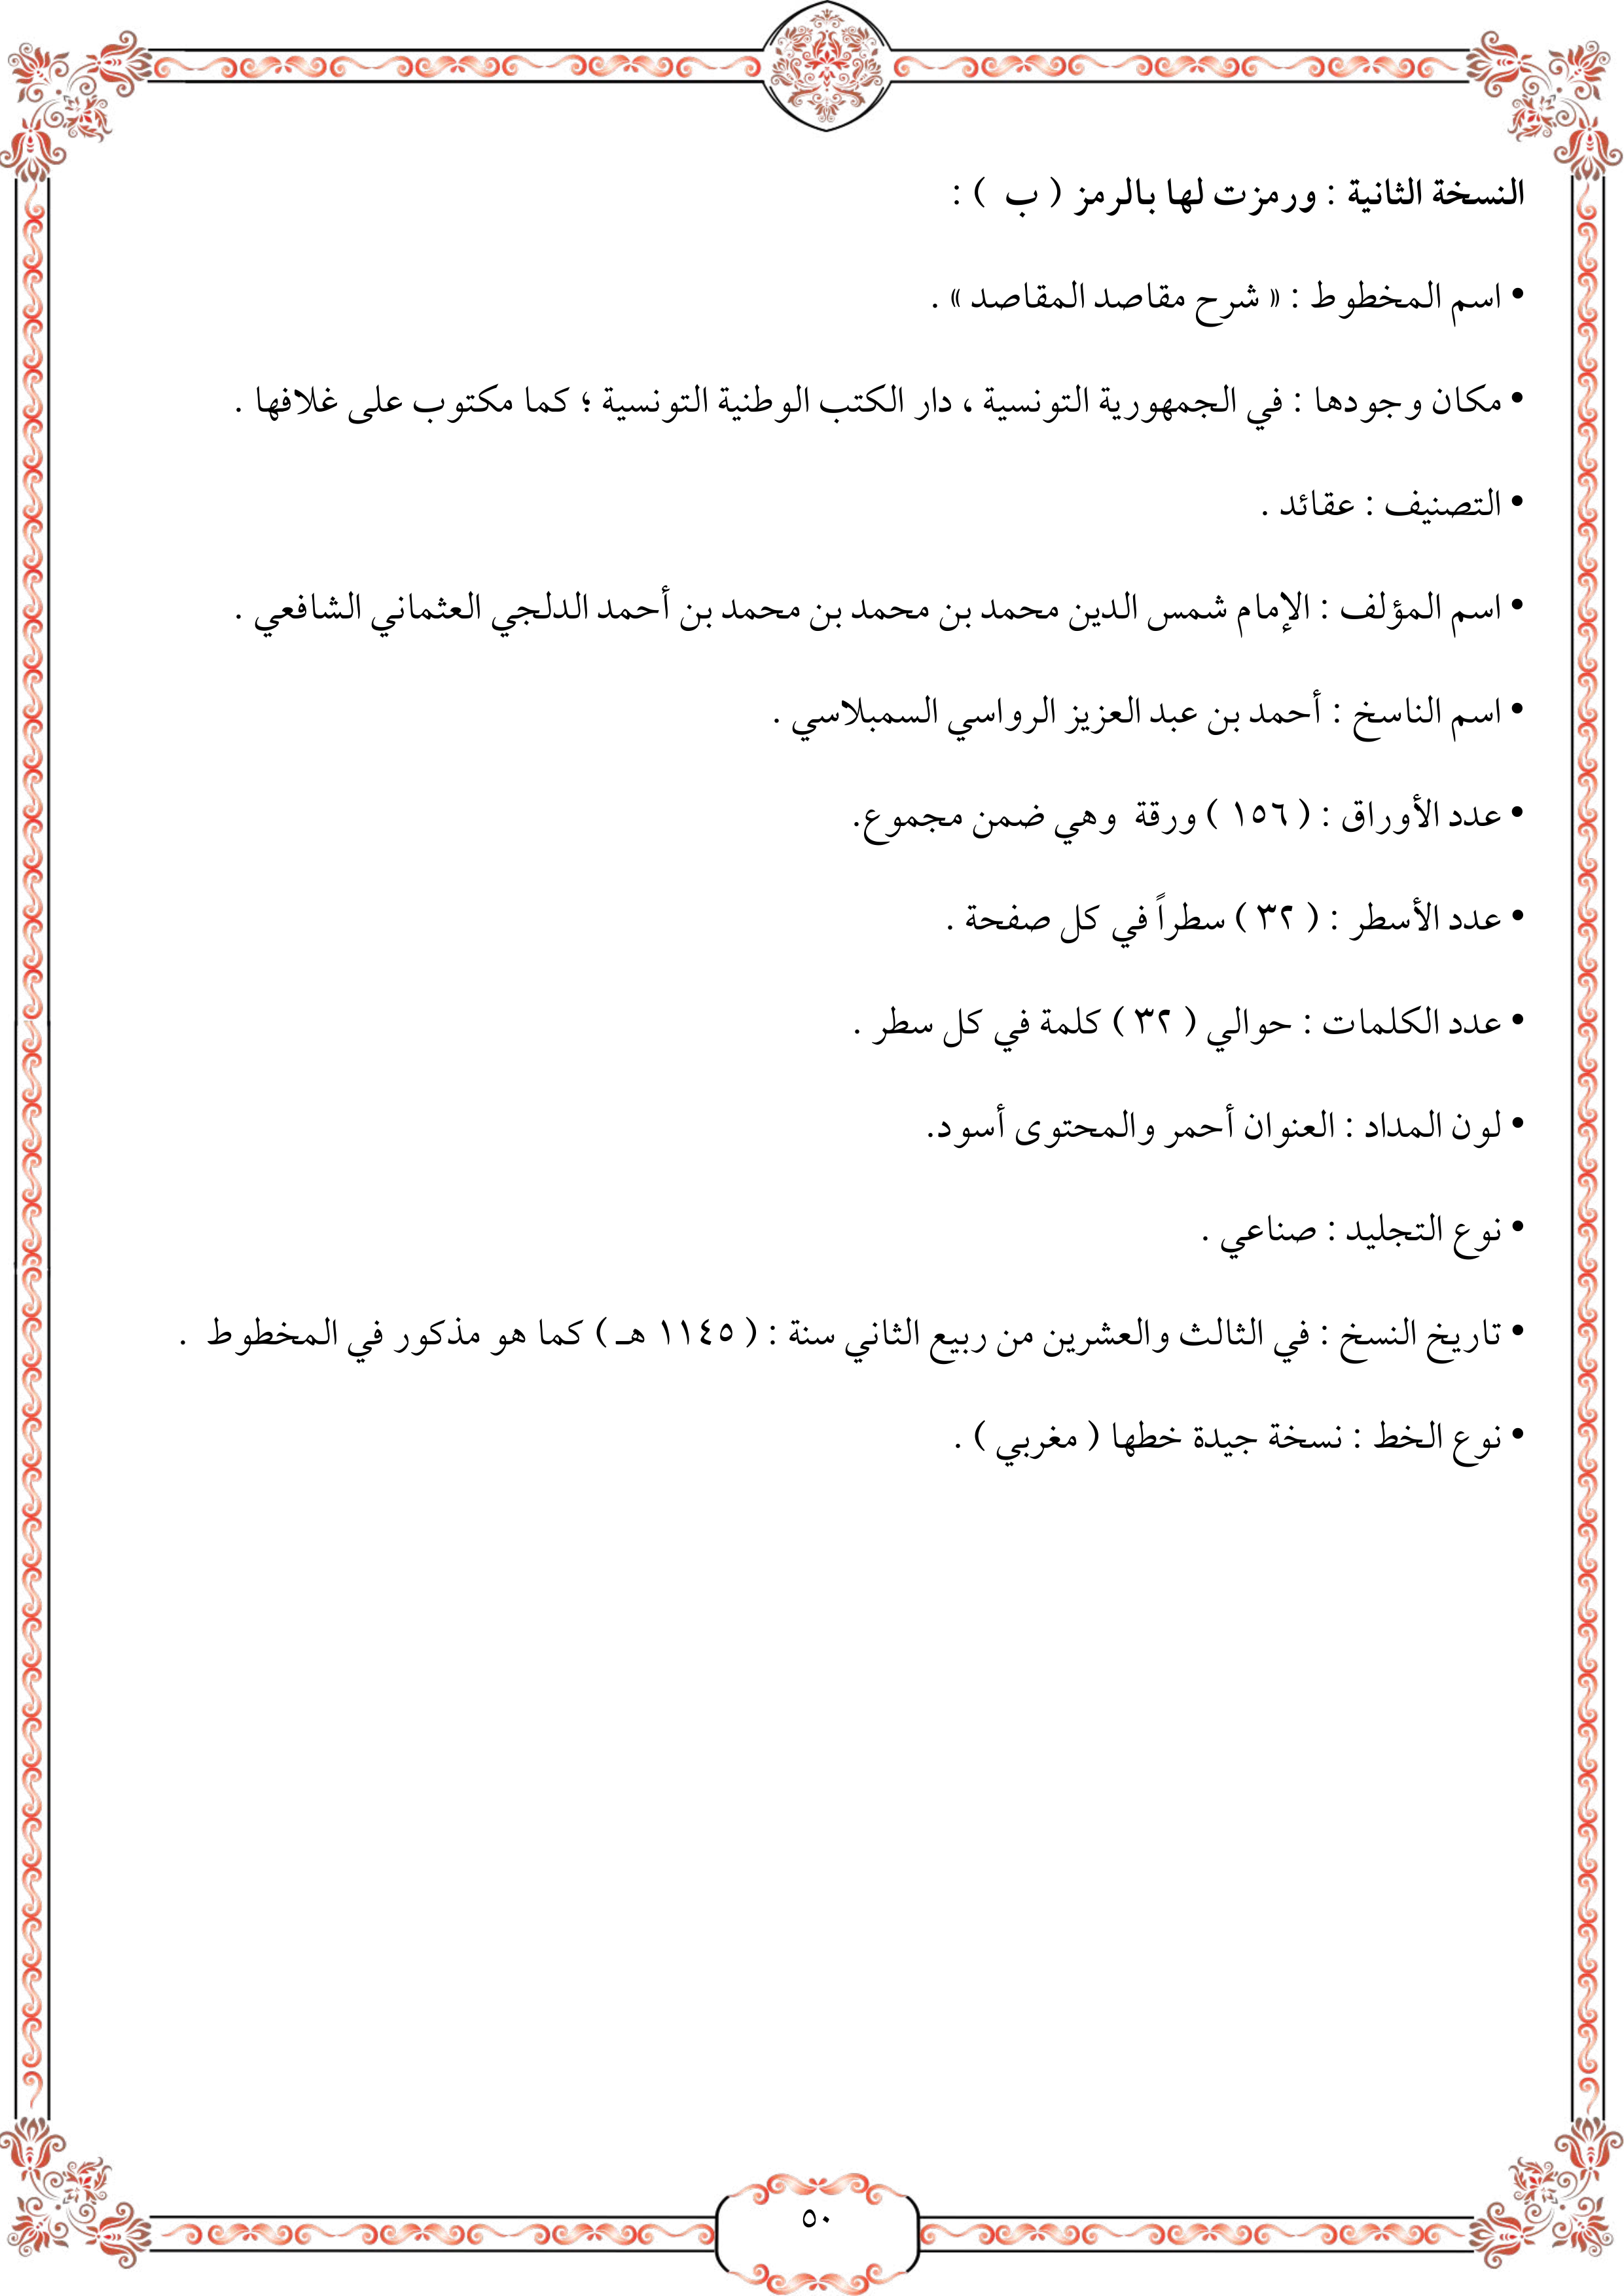 النسخة الثانية : ورمزت لها بالرمز ( ب ) :
• اسم المخطوط : « شرح مقاصد المقاصد » .
• مكان وجودها : في الجمهورية التونسية ، دار الكتب الوطنية التونسية ؛ كما مكتوب على غلافها .
• التصنيف : عقائد .
• اسم المؤلف : الإمام شمس الدين محمد بن محمد بن محمد بن أحمد الدلجي العثماني الشافعي .
• اسم الناسخ : أحمد بن عبد العزيز الرواسي السمبلاسي .
• عدد الأوراق : ( ١٥٦ ) ورقة وهي ضمن مجموع.
• عدد الأسطر : ( ٣٢ ) سطراً في كل صفحة .
• عدد الكلمات : حوالي ( ٣٢ ) كلمة في كل سطر .
• لون المداد : العنوان أحمر والمحتوى أسود.
• نوع التجليد : صناعي .
• تاريخ النسخ : في الثالث والعشرين من ربيع الثاني سنة : ( ١١٤٥ هـ ) كما هو مذكور في المخطوط .
• نوع الخط : نسخة جيدة خطها ( مغربي ) .
٥٠